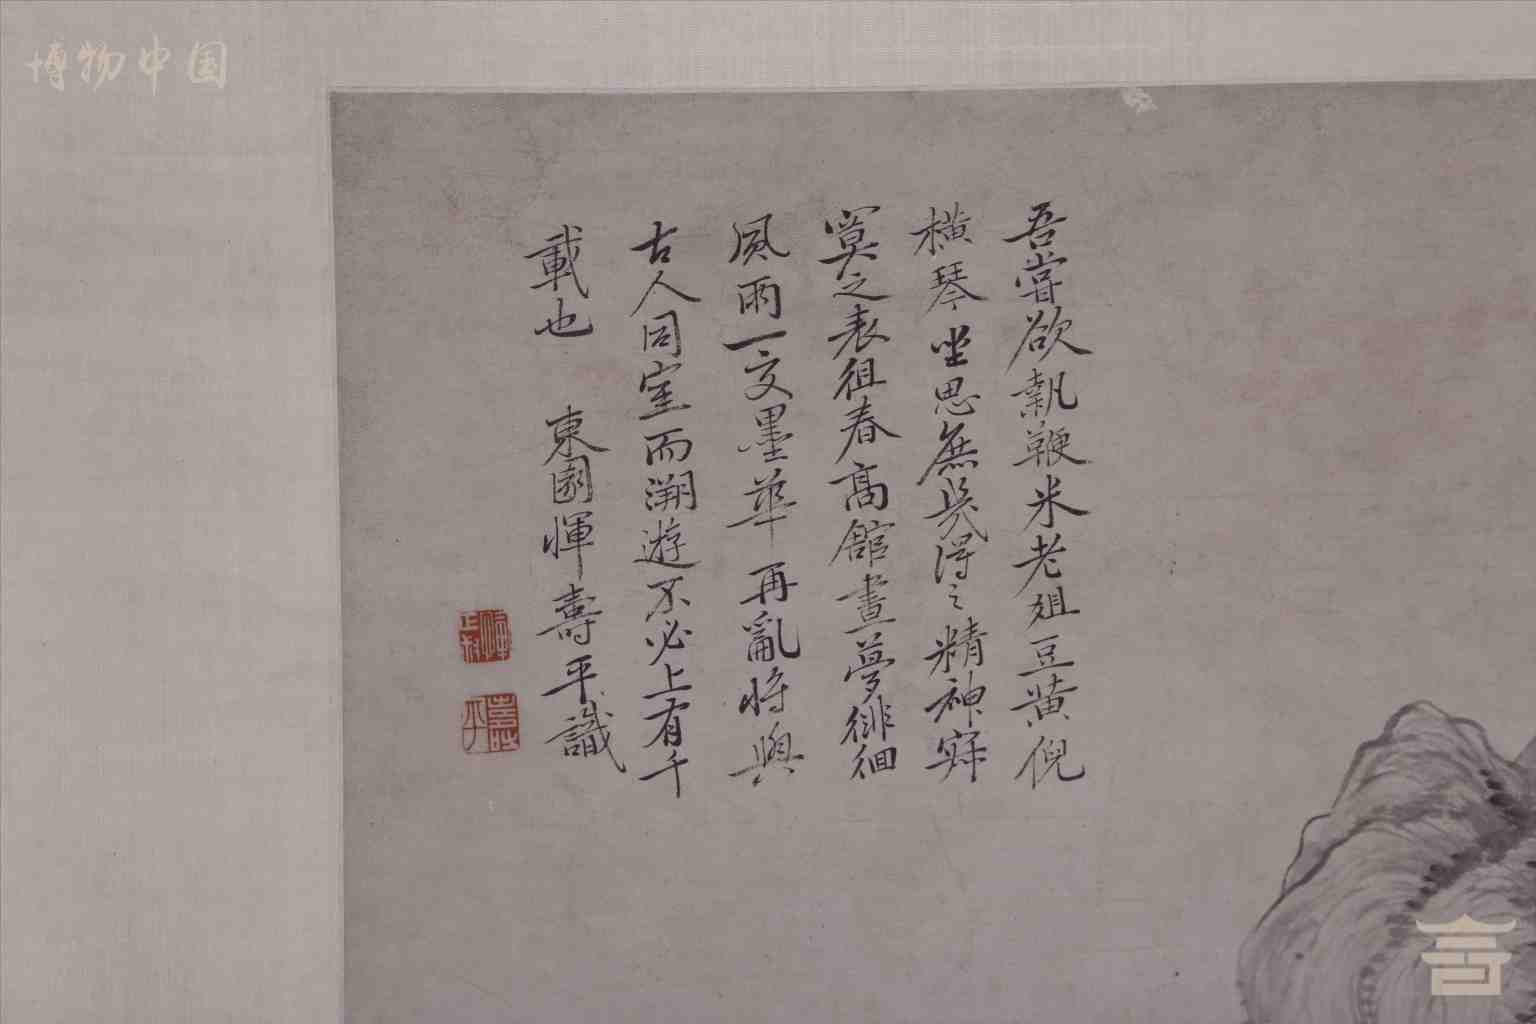 博物中国
吾嘗欲執鞭米老俎豆黄倪
橫琴坐思無㡬得之精神寂
寞之表徂春高館晝夢徘徊
風雨一交墨華再亂將與
古人同室而溯遊不必上有千
載也 東園惲壽平識
惲正叔
壽平